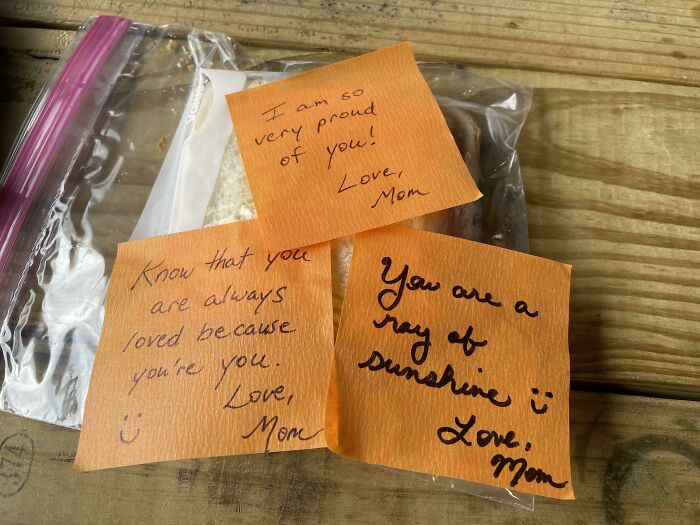 I am so
very proud
of you!
Love,
Mom
Know that you
are always
loved because
you're you.
Love,
:) Mom
You are a
ray of
sunshine :)
Love,
Mom